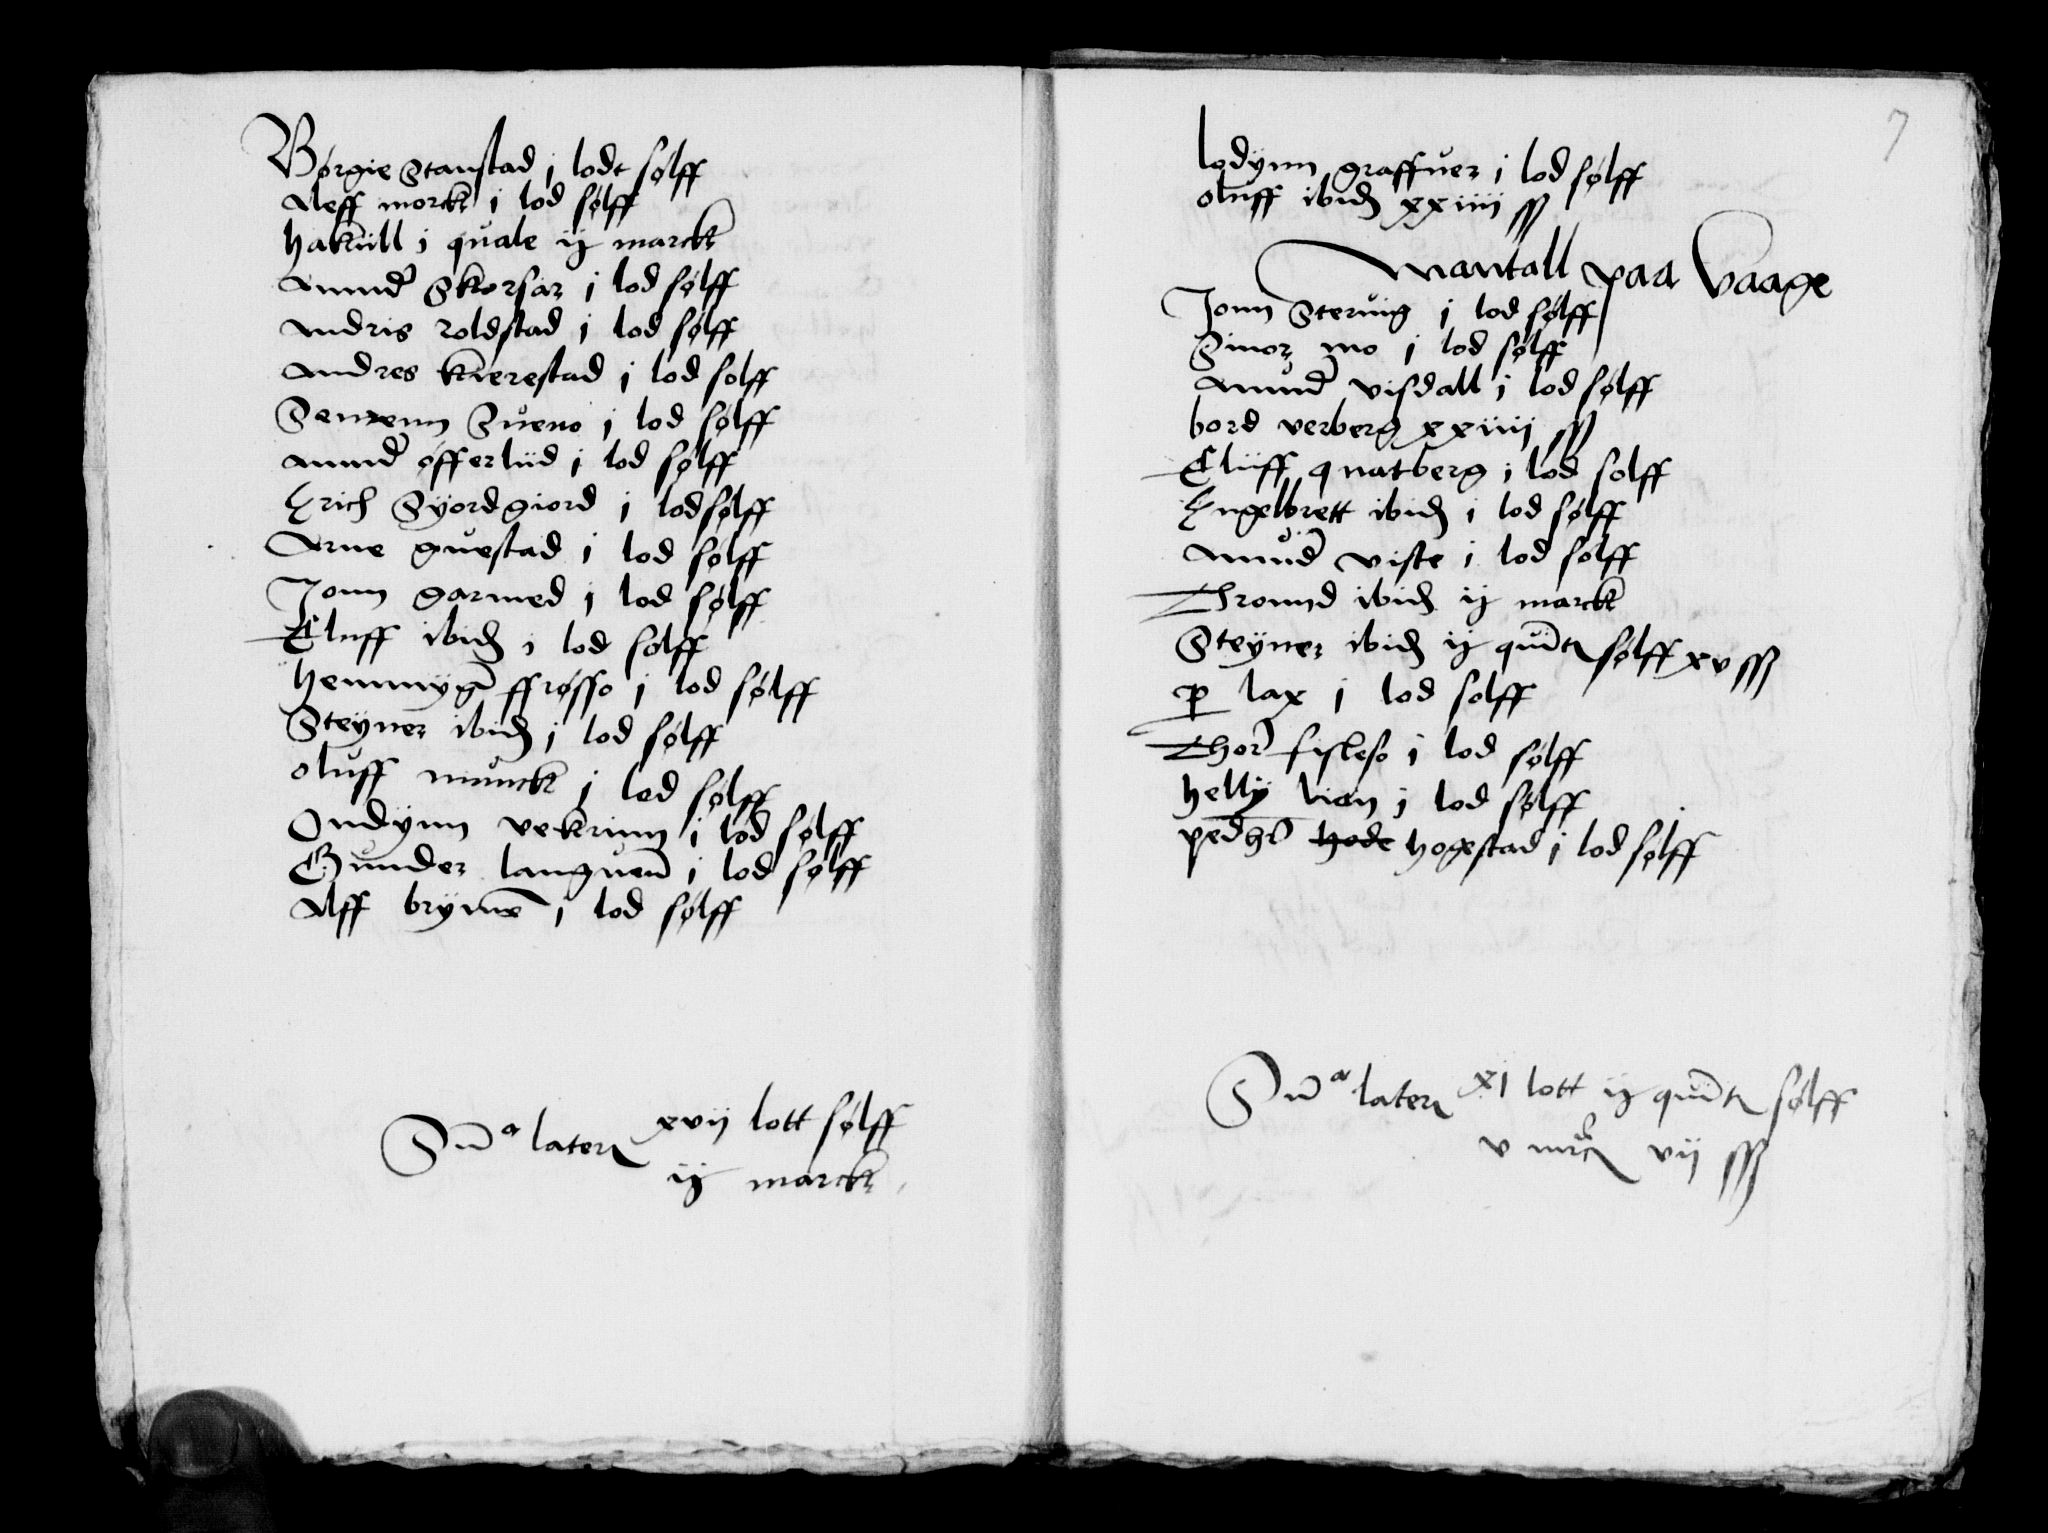 Børgie Stanstad j lodt sølff
Aleff morck i lod sølff
hakuill i quale ij marck
Amund Skorsar j lod sølff
Andris roldstad j lod sølff
Andres kierestad j lod sølff
Senrenn Sueno j lod sølff
Amund offerliid j lod sølff
Erich Syordgiord j lod sølff
Arne guestad j lod sølff
Jonn garmed j lod sølff
Eluff ibid j lod sølff
hemmyng ffrøsso j lod sølff
Steyner ibid j lod sølff
oluff munck j lod sølff
Ondynn vekrinn j lod sølff
Gunder languenn j lod sølff
Alff brymen j lod sølff
Suma lateris xvij lott sølff
ij marck
7
lodynn graffuer j lod sølff
oluff ibid xxiiii ss
Mantall paa Vaage
Jonn Steruig j lod sølff
Simor mo j lod sølff
Amund visdall j lod sølff
bord verberg xxiiii ss
Eluff quatberg j lod sølff
Engelbrett ibid j lod sølff
Amund viste j lod sølff
Thronnd ibid ij marck
Steyner ibid ij quint sølff xv ss
p lax j lod sølff
Thor fisleso j lod sølff
helly lien j lod sølff
peder hode hogestad j lod sølff
Suma lateris xj lott ij quint sølff
v mrck vij ss